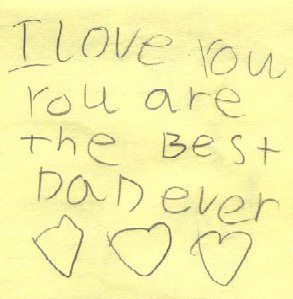 I love you
you are
the Best
DaD ever